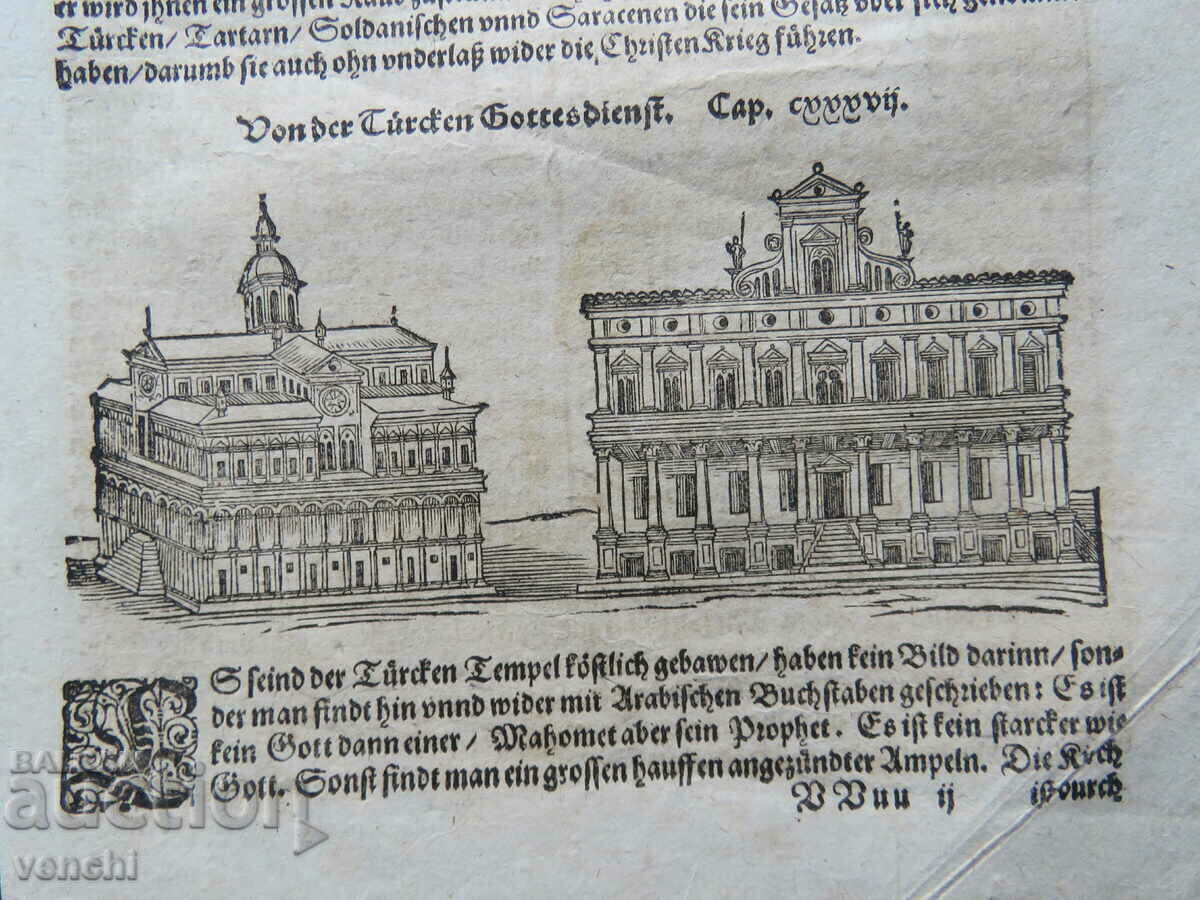 er wird jhnen ein grossen
Türcken/ Tartarn/ Soldanischen vnnd Saracenen die sein Gesatz
haben/ darumb sie auch ohn vnderlaß wider die Christen Krieg führen.
Von der Türcken Gottesdienst. Cap. cxxxvij.
ES seind der Türcken Tempel köstlich gebawen/ haben kein Bild darinn/ son-
der man findt hin vnnd wider mit Arabischen Buchstaben geschrieben: Es ist
kein Gott dann einer/ Mahomet aber sein Prophet. Es ist kein starcker wie
Gott. Sonst findt man ein grossen hauffen angezündter Ampeln. Die Kirch
VVuu ij ist durch
auction
venchi